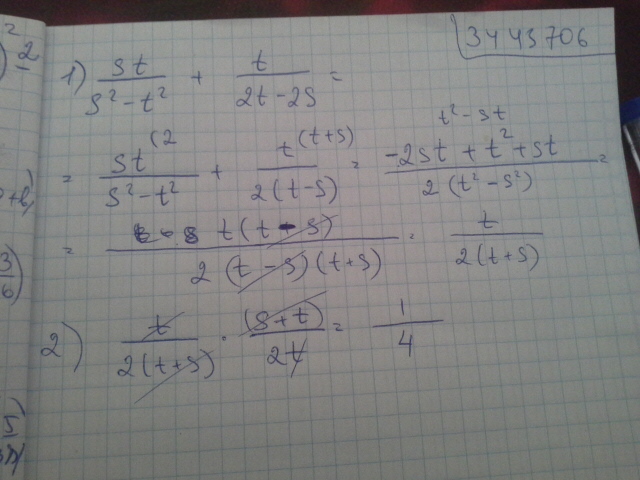 3443706
1) st/(s² − t²) + t/(2t − 2s) =
t² − st
= st(2/(s² − t²) + t(t+s)/(2(t−s)) = (−2st + t² + st)/(2(t² − s²)) =
= t(t − s)/(2(t − s)(t + s)) = t/(2(t + s))
2) t/(2(t+s)) · (s+t)/(2t) = 1/4